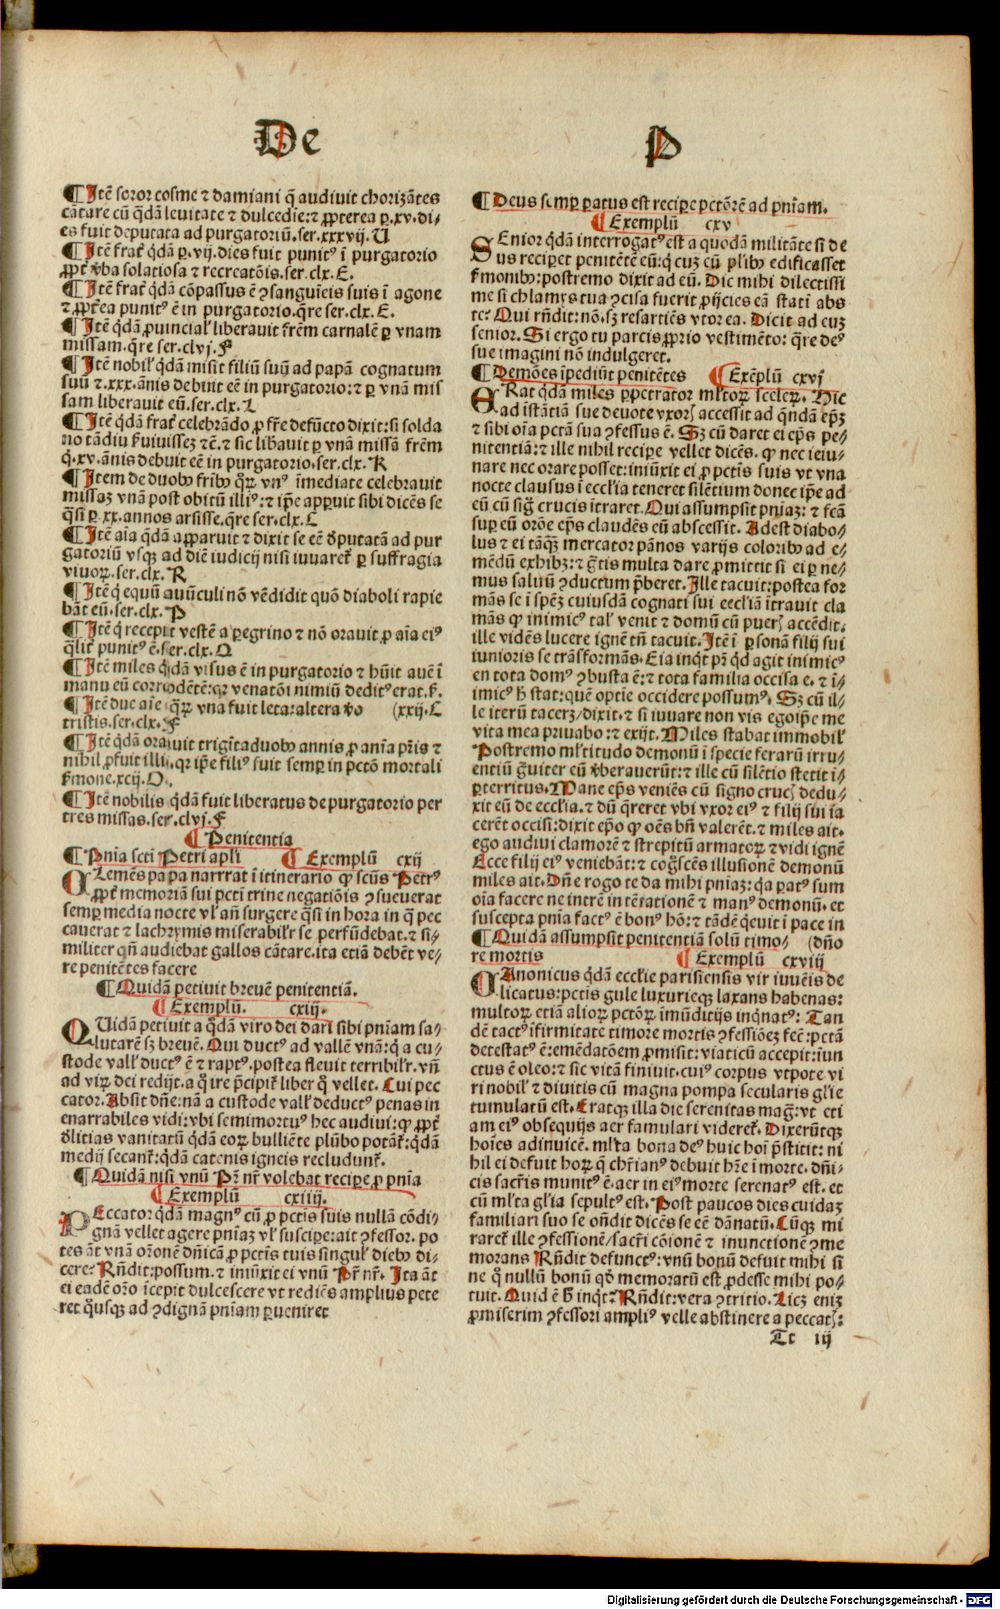 De P
¶ Itē soror cosme ⁊ damiani q̄ audiuit chorizātes
cātare cū q̄dā leuitate ⁊ dulcedie:⁊ ꝓpterea ꝑ.xv.di-
es fuit deputata ad purgatoriū.ser.xxxvij.U
¶ Itē frat̄ q̄dā ꝑ.vij.dies fuit punitꝰ ī purgatorio
ꝓpt̄ v̄ba solatiosa ⁊ recreatōis.ser.clx.E.
¶ Itē frat̄ q̄dā cōpassus ē ꝯsanguīeis suis ī agone
⁊ ꝓpt̄ea punitꝰ ē in purgatorio.q̄re ser.clx.E.
¶ Itē q̄dā ꝓuincial̓ liberauit fr̄em carnalē ꝑ vnam
missam.q̄re ser.clvj.F
¶ Itē nobil̓ q̄dā misit filiū suū ad papā cognatum
suū ⁊.xxx.ānis debuit eē in purgatorio:⁊ ꝑ vnā mis
sam liberauit eū.ser.clx.L
¶ Itē q̄dā frat̄ celebrādo ꝓ fr̄e defūcto dixit:si solda
no tādiu s̄uiuissez ⁊ē.⁊ sic lib̄auit ꝑ vnā missā fr̄em
q̄.xv.ānis debuit eē in purgatorio.ser.clx.R
¶ Item de duobꝰ fr̄ibꝰ q̄ꝝ vnꝰ īmediate celebrauit
missaz vnā post obitū illiꝰ:⁊ ip̄e apparuit sibi dicēs se
q̄si ꝑ.xx.annos arsisse.q̄re ser.clx.C
¶ Itē aīa q̄dā apparuit ⁊ dixit se eē d̄putatā ad pur
gatoriū vsqꝫ ad diē iudicij nisi iuuaret̄ ꝑ suffragia
viuoꝝ.ser.clx.R
¶ Itē q̄ equū auūculi nō vēdidit quō diaboli rapie
bāt eū.ser.clx.P
¶ Itē q̄ recepit vestē a ꝑegrino ⁊ nō orauit ꝓ aīa eiꝰ
q̄lit̄ punitꝰ ē.ser.clx.O
¶ Itē miles q̄dā visus ē in purgatorio ⁊ hūit auē ī
manu eū corrodētē:qꝛ venatōi nimiū deditꝰ erat.s̄.
¶ Itē due aīe q̄ꝝ vna fuit leta:altera v̄o (xxij.C
tristis.ser.clx.F
¶ Itē q̄dā orauit trigīta duobꝰ annis ꝓ anīa pr̄is ⁊
nihil ꝓfuit illi.qꝛ ip̄e filiꝰ fuit semꝑ in pctō mortali
s̄mone.xcij.O.
¶ Itē nobilis q̄dā fuit liberatus de purgatorio per
tres missas.ser.clvj.F
¶ Penitentia
¶ Pn̄ia scti Petri apl̓i ¶ Exemplū cxij
CLemēs papa narrrat ī itinerario ꝙ sctūs Petrꝰ
ꝓpt̄ memoriā sui pctī trine negatiōis ꝯsueuerat
semꝑ media nocte vl̓ an̄ surgere q̄si in hora in q̄ pec
cauerat ⁊ lachrymis miserabilr̓ se perfūdebat.⁊ si-
militer qn̄ audiebat gallos cātare.ita etiā debēt ve-
re penitētes facere
¶ Quidā petiuit breuē penitentiā.
¶ Exemplū. cxiij.
QUidā petiuit a q̄dā viro dei dari sibi pn̄iam sa-
lutarē sꝫ breuē.Qui ductꝰ ad vallē vnā:q̄ a cu-
stode vall̓ ductꝰ ē ⁊ raptꝰ.postea fleuit terribilr̓.vn̄
ad viꝝ dei redijt.a q̄ ire p̄cipit̄ liber q̄ vellet.Cui pec
cator.Absit dn̄e:nā a custode vall̓ deductꝰ penas in
enarrabiles vidi:vbi semimortuꝰ hec audiui:ꝙ ꝓpt̄
d̄litias vanitatū q̄dā eoꝝ bulliēte plūbo potāt̄:q̄dā
medij secant̄:q̄dā catenis igneis recludunt̄.
¶ Quidā nisi vnū Pr̄ nr̄ volebat recipe ꝓ pn̄ia
¶ Exemplū cxiiij.
PEccator q̄dā magnꝰ cū ꝓ pctīs suis nullā cōdi-
gnā vellet agere pn̄iaz vl̓ suscipe:ait ꝯfessor.po
tes āt vnā orōnē dn̄icā ꝓ pctīs tuis singul̓ diebꝰ di-
cere?Rn̄dit:possum.⁊ iniūxit ei vnū Pr̄ nr̄.Ita āt
ei eadē orō īcepit dulcescere vt rediēs amplius pete
ret q̄usqꝫ ad ꝯdignā pn̄iam ꝑueniret
¶ Deus semꝑ ꝑatus est recipe pctōrē ad pn̄iam.
¶ Exemplū cxv
SEnior q̄dā interrogatꝰ est a quodā militāte si de
us reciperet penitētē eū:q̄ cuz eū pl̓ibꝰ edificasset
s̄monibꝰ:postremo dixit ad eū.Dic mihi dilectissi
me si chlamys tua ꝯcisa fuerit ꝓijcies eā statī abs
te?Qui rn̄dit:nō.sꝫ resartiēs vtor ea.Dicit ad euz
senior.Si ergo tu parcis ꝓprio vestimēto:q̄re deꝰ
sue imagini nō indulgeret.
¶ Demōes īpediūt penitētes ¶ Exēplū cxvj
ERat q̄dā miles ꝑpetrator ml̓toꝝ sceleꝝ.Hic
ad īstātiā sue deuote vxoꝝ accessit ad q̄ndā ep̄ꝫ
⁊ sibi oīa pctā sua ꝯfessus ē.Sꝫ cū daret ei ep̄s pe-
nitentiā:⁊ ille nihil recipe vellet dicēs.ꝙ nec ieiu-
nare nec orare posset:iniūxit ei ꝓ pctīs suis vt vna
nocte clausus ī eccl̓ia teneret silētium donec ip̄e ad
eū cū sig̃ crucis ītraret.Qui assumpsit pn̄iaz:⁊ fcā
suꝑ eū orōe ep̄s claudēs eū abscessit.Adest diabo-
lus ⁊ ei tāqꝫ mercator pānos varijs coloribꝰ ad e-
mēdū exhibꝫ:⁊ gr̄tis multa dare ꝓmittit si ei ꝑ ne-
mus saluū ꝯductum p̄beret.Ille tacuit:postea for
māns se ī spēz cuiusdā cognati sui eccl̓iā ītrauit cla
mās ꝙ inimicꝰ tal̓ venit ⁊ domū cū pueꝝ accēdit.
ille vidēs lucere ignē tn̄ tacuit.Itē ī ꝑsonā filij sui
iunioris se trāsformās.Eia inq̄t pr̄ q̄d agit inimicꝰ
en tota domꝰ ꝯbusta ē:⁊ tota familia occisa ē.⁊ ī-
imicꝰ h̄ stat:quē optīe occidere possumꝰ.Sꝫ cū il-
le iterū tacerꝫ/dixit.⁊ si iuuare non vis egoip̄e me
vita mea priuabo:⁊ exijt.Miles stabat immobil̓
Postremo ml̓titudo demonū ī specie ferarū irru-
entiū g̃uiter eū v̄berauerūt:⁊ ille cū silētio stetit ī-
ꝑterritus.Mane ep̄s veniēs cū signo crucꝭ dedu-
xit eū de eccl̓ia.⁊ dū q̄reret vbi vxor eiꝰ ⁊ filij sui ia
cerēt occisi:dixit ep̄o ꝙ oēs bn̄ valerēt.⁊ miles ait.
ego audiui clamorē ⁊ strepitū armatoꝝ ⁊ vidi ignē
Ecce filij eiꝰ veniebāt:⁊ cog̃scēs illusionē demonū
miles ait.Dn̄e rogo te da mihi pn̄iaz:q̄a ꝑatꝰ sum
oīa facere ne intrē in tētationē ⁊ manꝰ demonū.et
suscepta pn̄ia factꝰ ē bonꝰ hō:⁊ tādē q̄euit ī pace in
¶ Quidā assumpsit penitentiā solū timo- (dn̄o
re mortis ¶ Exemplū cxviij
CAnonicus q̄dā ecclie parisiensis vir iuuēis de
licatus:pctīs gule luxurieqꝫ laxans habenas:
multoꝝ etiā alioꝝ pctōꝝ īmūditijs inq̄natꝰ:Tan
dē tactꝰ īfirmitate timore mortis ꝯfessiōeꝫ fecē:pctā
detestatꝰ ē:emēdatōem ꝓmisit:viaticū accepit:īun
ctus ē oleo:⁊ sic vitā finiuit.cuiꝰ corpus vtpote vi
ri nobil̓ ⁊ diuitis cū magna pompa secularis gl̓ie
tumulatū est.Eratqꝫ illa die serenitas mag̃:vt eti
am eiꝰ obsequijs aer famulari videret̄.Dixerūtqꝫ
hoīes adinuicē.ml̓ta bona deꝰ huic hoī p̄stitit:ni
hil ei defuit hoꝝ q̄ chr̄ianꝰ debuit hr̄e ī morte.dn̄i-
cis sacr̄is munitꝰ ē.aer in eiꝰ morte serenatꝰ est.et
cū ml̓ta gl̓ia sepultꝰ est.Post paucos dies cuidaꝫ
familiari suo se on̄dit dicēs se eē dānatū.Cūqꝫ mi
raret̄ ille ꝯfessionē/sacr̄i cōionē ⁊ inunctionē ꝯme
morans Rn̄dit defunctꝰ:vnū bonū defuit mihi si
ne q̄ nullū bonū qd̄ memoratū est ꝓdesse mihi po-
tuit.Quid ē h̄ inq̄t?Rn̄dit:vera ꝯtritio.Licꝫ eniꝫ
ꝓmiserim ꝯfessori ampliꝰ velle abstinere a peccatꝭ:
Tt iij
Digitalisierung gefördert durch die Deutsche Forschungsgemeinschaft - DFG